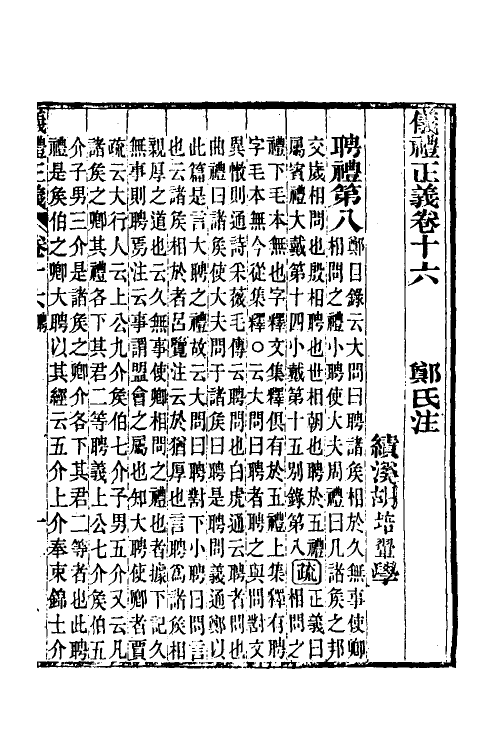 儀禮正義卷十六　鄭氏注
績溪胡培翬學
聘禮第八
鄭目錄云大問曰聘諸矦相於久無事使卿
相問之禮小聘使大夫周禮曰凡諸矦之邦
交歲相問也殷相聘也世相朝也聘於五禮
屬賓禮大戴第十四小戴第十五別錄第八
疏
正義曰
相問之
禮下毛本無也字釋文集釋俱有於五禮上集釋有聘
字毛本無今從集釋○云大問曰聘者聘之與問對文
異散則通詩采薇毛傳云聘問也白虎通云聘者問也
曲禮曰諸矦使大夫問于諸矦曰聘是聘問義通鄭以
此篇是言大聘之禮故云大問曰聘對下小聘曰問言
也云諸矦相於者呂覽注云於猶厚也言聘爲諸矦相
親厚之道也云久無事使卿相問之禮也者據下記久
無事則聘焉注云事謂盟會之屬也知大聘使卿者賈
疏云大行人云上公九介矦伯七介子男五介又云凡
諸矦之卿其禮各下其君二等聘義上公七介矦伯五
介子男三介是諸矦之卿介各下其君二等者也此聘
禮是矦伯之卿大聘以其經云五介上介奉束錦士介
儀禮正義　卷十六　聘　一